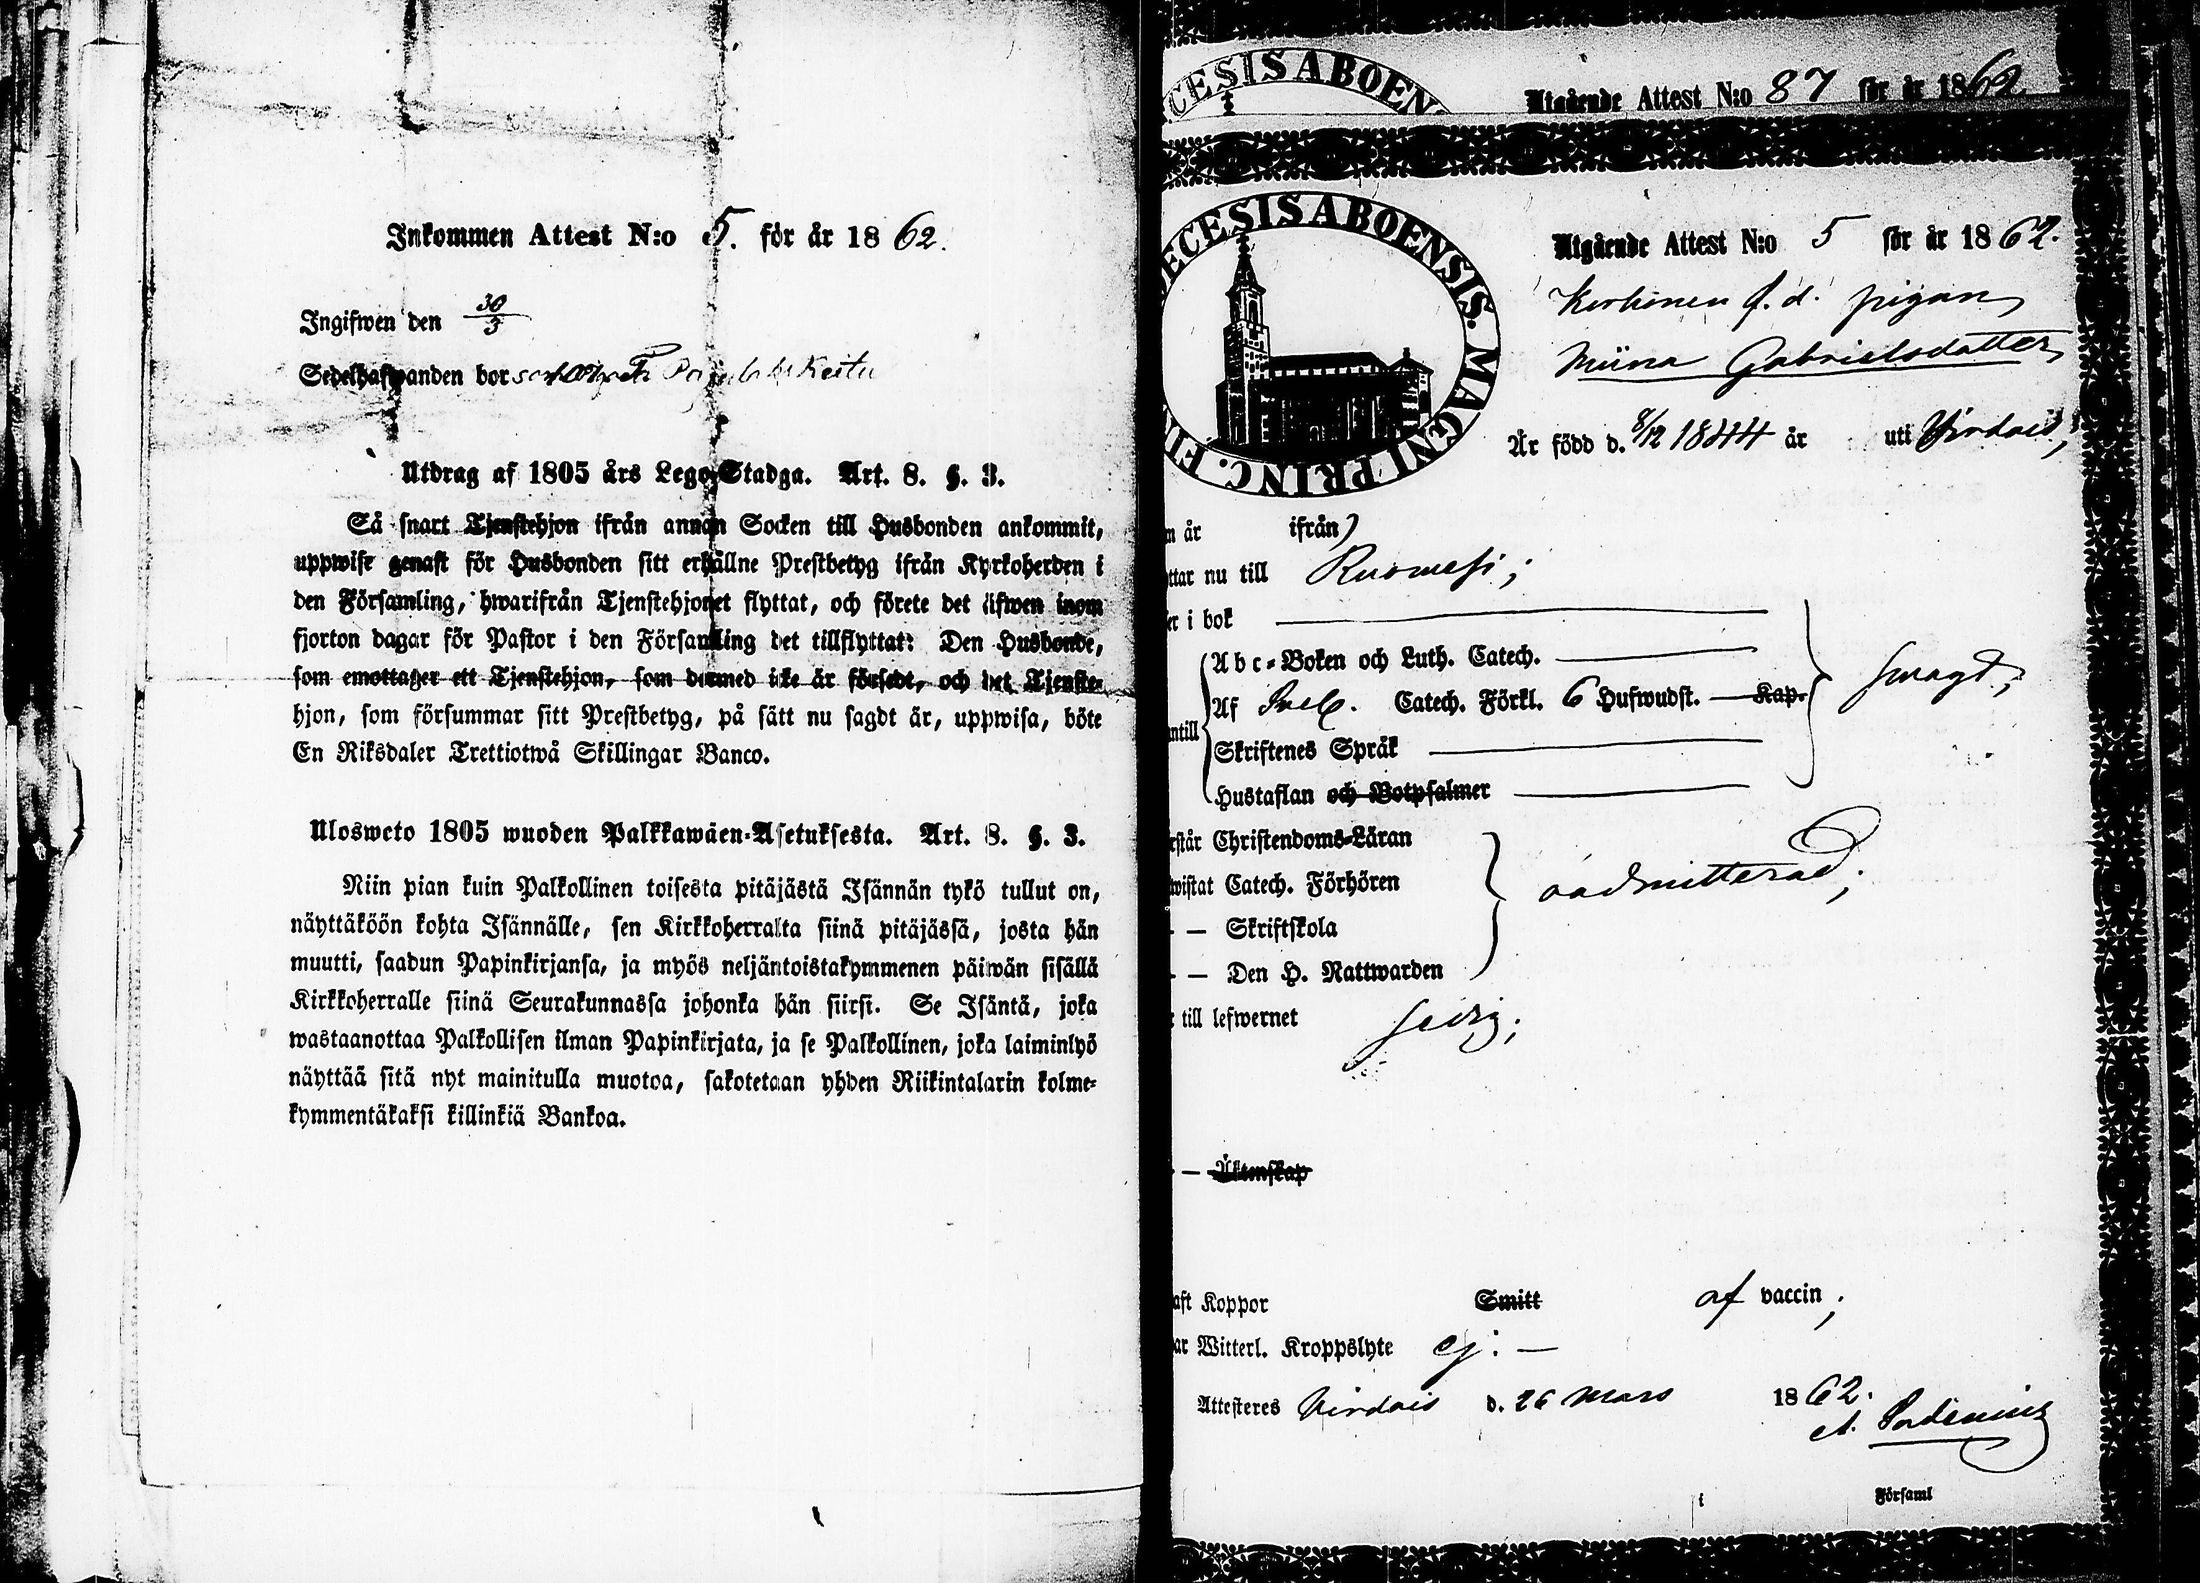 Inkommen Attest N:o 5. för år 1862.
Ingifwen den 30/3
Sedelhafwanden bor
Utdrag af 1805 års Lego-Stadga. Art. 8. §. 3.
Så snart Tjenstehjon ifrån annan Socken till Husbonden ankommit,
uppwise genast för Husbonden sitt erhållne Prestbetyg ifrån Kyrkoherden i
den Församling, hwarifrån Tjenstehjonet flyttat, och förete det äfwen inom
fjorton dagar för Pastor i den Församling det tillflyttat: Den Husbonde,
som emottager ett Tjenstehjon, som dermed icke är försedt, och det Tjenste-
hjon, som försummar sitt Prestbetyg, på sätt nu sagdt är, uppwisa, böte
En Riksdaler Trettiotwå Skillingar Banco.
Ulosweto 1805 wuoden Palkkawäen-Asetuksesta. Art. 8. §. 3.
Niin pian kuin Palkollinen toisesta pitäjästä Isännän tykö tullut on,
näyttäköön kohta Isännälle, sen Kirkkoherralta siinä pitäjässä, josta hän
muutti, saadun Papinkirjansa, ja myös neljäntoistakymmenen päiwän sisällä
Kirkkoherralle siinä Seurakunnassa johonka hän siirsi. Se Isäntä, joka
wastaanottaa Palkollisen ilman Papinkirjata, ja se Palkollinen, joka laiminlyö
näyttää sitä nyt mainitulla muotoa, sakotetaan yhden Riikintalarin kolme-
kymmentäkaksi killinkiä Bankoa.
CESIS ABOEN
Utgående Attest N:o 87 för år 1862
ECESIS ABOENSIS. MAGNI PRINC. FIN
Utgående Attest N:o 5 för år 1862.
f. d. pigan
Miina Gabrielsdotter,
Är född d. 8/12 1844 år uti Virdois;
m år ifrån)
ttar nu till Ruowesi;
er i bok
Abc-Boken och Luth. Catech.
Af Sveb. Catech. Förkl. 6 Hufwudst. Kap. swagt;
ntill
Skriftenes Språk
Hustaflan och Botpsalmer
rstår Christendoms-Läran
wistat Catech. Förhören oadmitterad;
- — Skriftskola
- — Den H. Nattwarden
till lefwernet sedig;
- — Äktenskap
aft Koppor Smitt af vaccin;
ar Witterl. Kroppslyte ej: —
Attesteres Virdois d. 26 Mars 1862.
i Församl